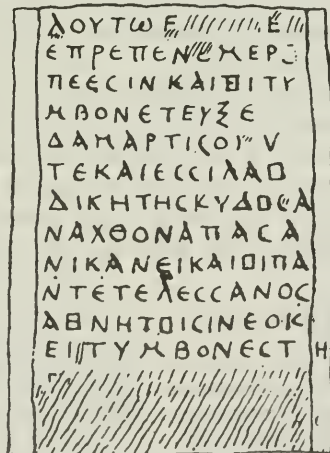 ΛΟΥΤΩΕ Ε
ΕΠΡΕΠΕΝ ΜΕΡΣ
ΠΕΕϹΙΝΚΑΙΟΙΤΥ
ΜΒΟΝΕΤΕΥΞΕ
ΔΑΜΑΡΤΙϹΟΥ Υ
ΤΕΚΑΙΕϹϹΙΛΑΟ
ΔΙΚΗΤΗϹΚΥΔΟϹΑ
ΝΑΧΘΟΝΑΠΑϹΑ
ΝΙΚΑΝΕΙΚΑΙΟΙΠΑ
ΝΤΕΤΕΛΕϹϹΑΝΟϹ
ΑΘΝΗΤΟΙϹΙΝΕΟΚ
ΕΙ ΤΥΜΒΟΝΕϹΤ Η